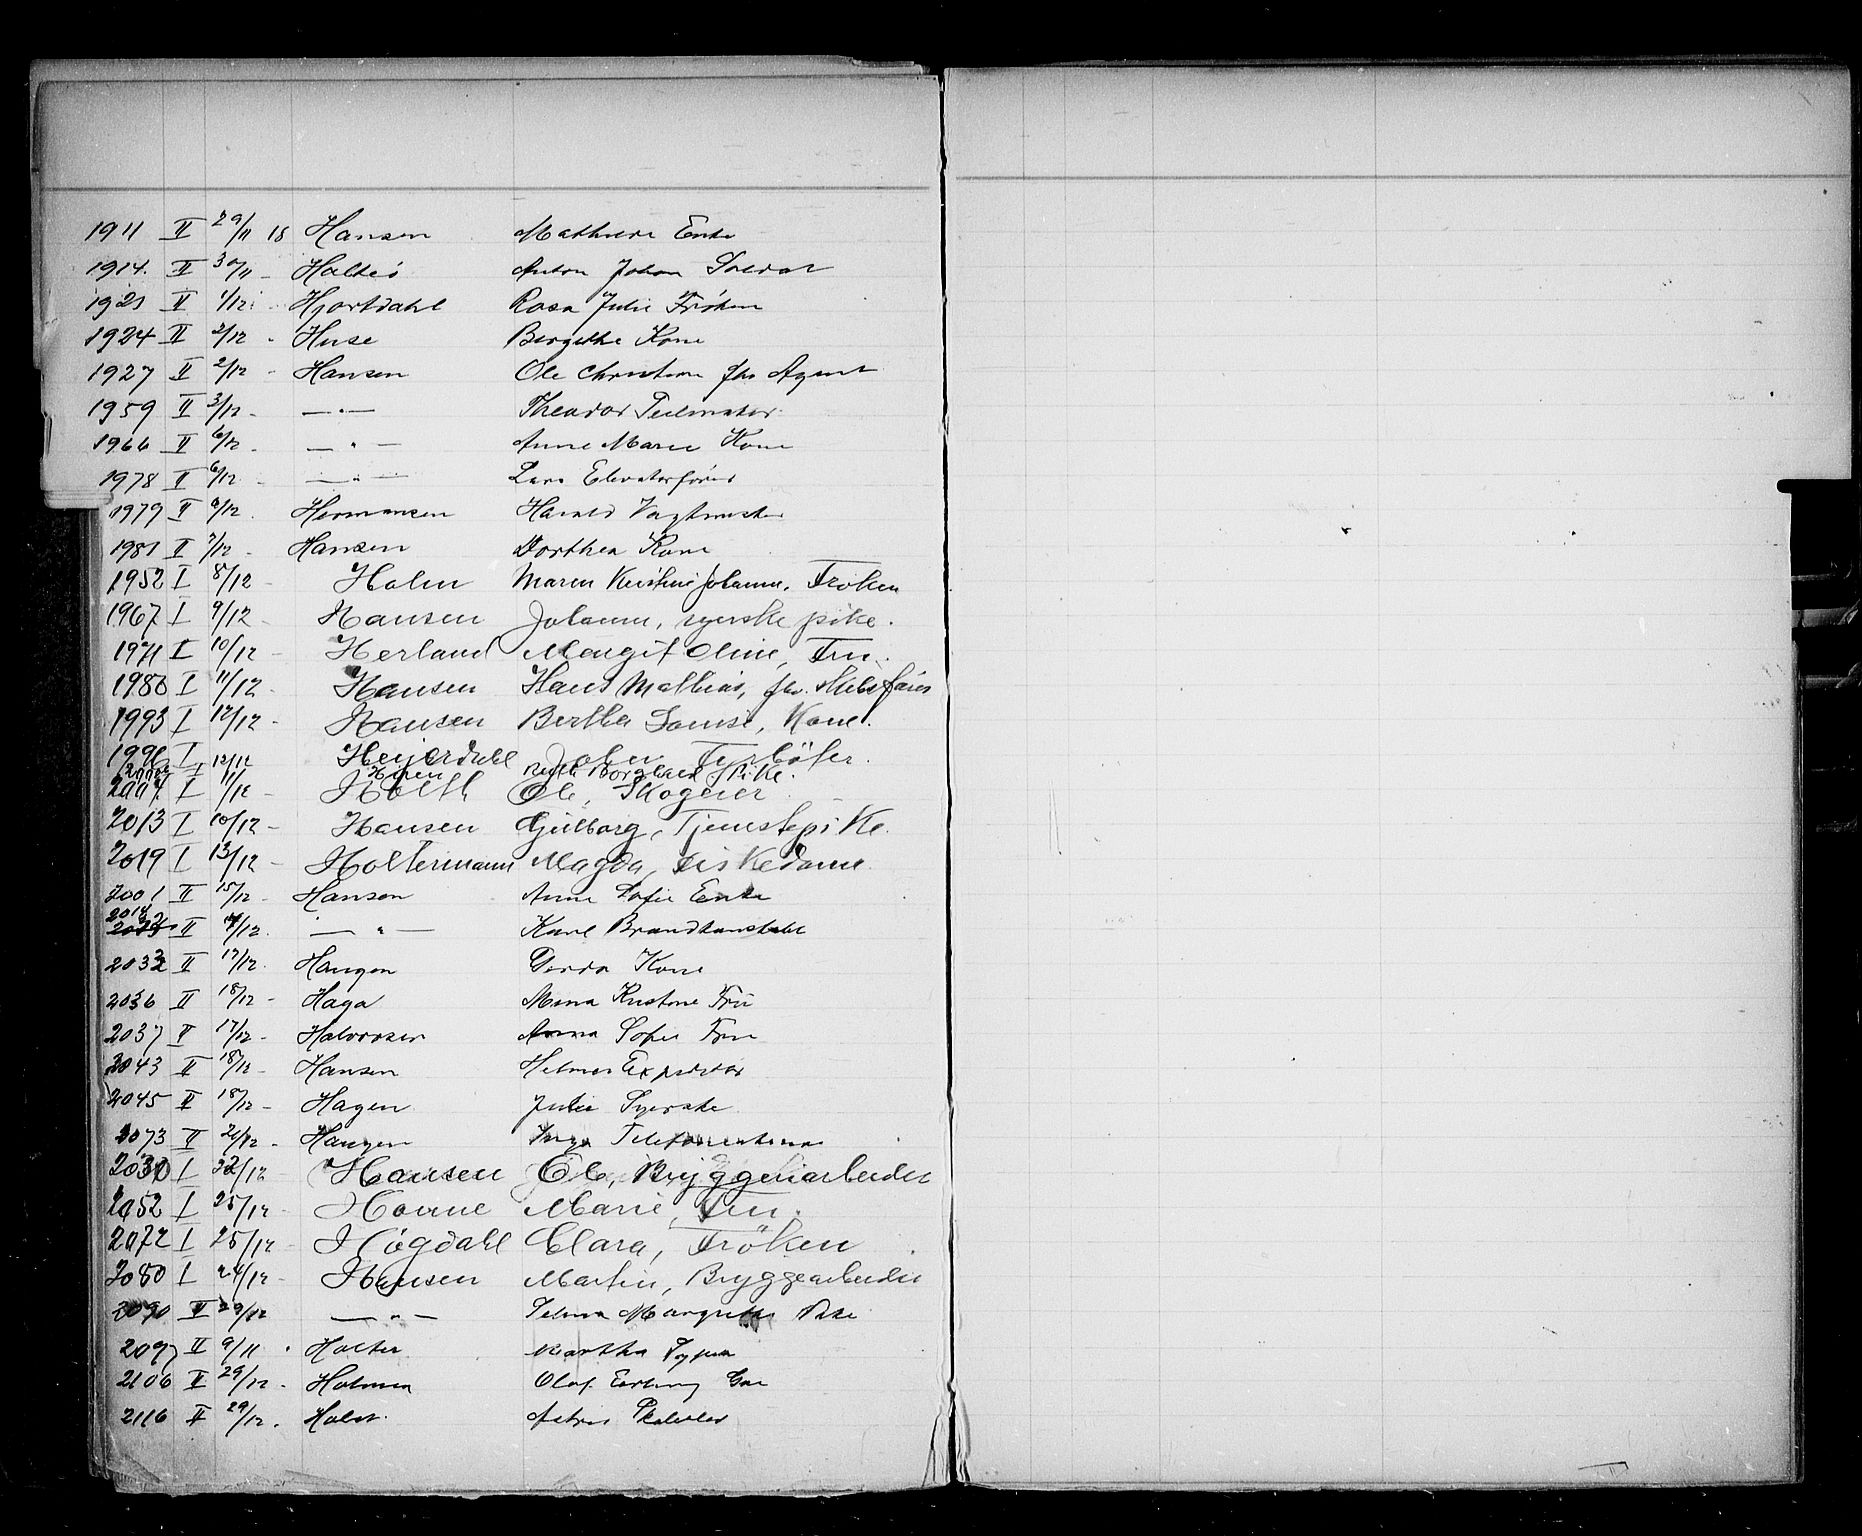 1911 II 29/11 18 Hansen Mathilde Enke
1914 II 30/11 - Anton Johan Soldat
1921 II 1/12 Hjortdahl Rosa Julie Frøken
1924 II 2/12 - Huse Bergithe Kone
1927 II 2/12 - Hansen Ole Christian fhv Agent
1959 II 3/12 - — " — Theodor
1966 II 6/12 - — " — Anne Marie Kone
1978 II 6/12 - — " — Lars Elevatorfører
1979 II 6/12 Hermansen Harald Vagtmester
1981 II 7/12 - Hansen Dorthea Kone
1952 I 8/12 - Holm Maren Kristine Johanne, Frøken
1967 I 9/12 - Hansen Johanne, syerske pike.
1971 I 10/12 - Herland Margit Oline, Fru.
1980 I 11/12 - Hansen Hans Mathias, fhv. Skibsfører
1993 I 12/12 - Hansen Bertha Lovise, Kone.
1996 I 12/12 Heijerdahl Johan Fyrböter.
I 11/12 Borghild Pike.
2007 I 11/12 - Holth Ole, Skogeier
2013 I 10/12 - Hansen Gulborg, Tjenestepike.
2019 I 13/12 - Holtermann Magda, Diskedame
2001 II 15/12 - Hansen Anne Sofie Enke
2014 II /12. — " — Karl Brandkonstabel
2032 II 17/12 Haugen Gerda Kone
2036 II 18/12 - Haga Kristine Fru
2037 II 17/12 - Halvorsen Anna Sofie Fru
2043 II 18/12 - Hansen Hilmar Expeditør
2045 II 18/12 - Hagen Julie Syerske
2073 II 21/12 - Haugen Inga Telefonistinne
I /12 Hansen Ole, Bryggeriarbeider
2052 I 25/12 - Hovne Marie, Fru.
2072 I 25/12 - Høgdahl Clara, Fröken
2080 I 24/12 - Hansen Martin, Bryggearbeider
2090 II 29/12 — " — Selma Margrethe Pike
2097 II 9/11 - Holter Martha
2106 II 29/12 - Holmen Olaf Erling
2116 II 29/12 - Holst Astrid